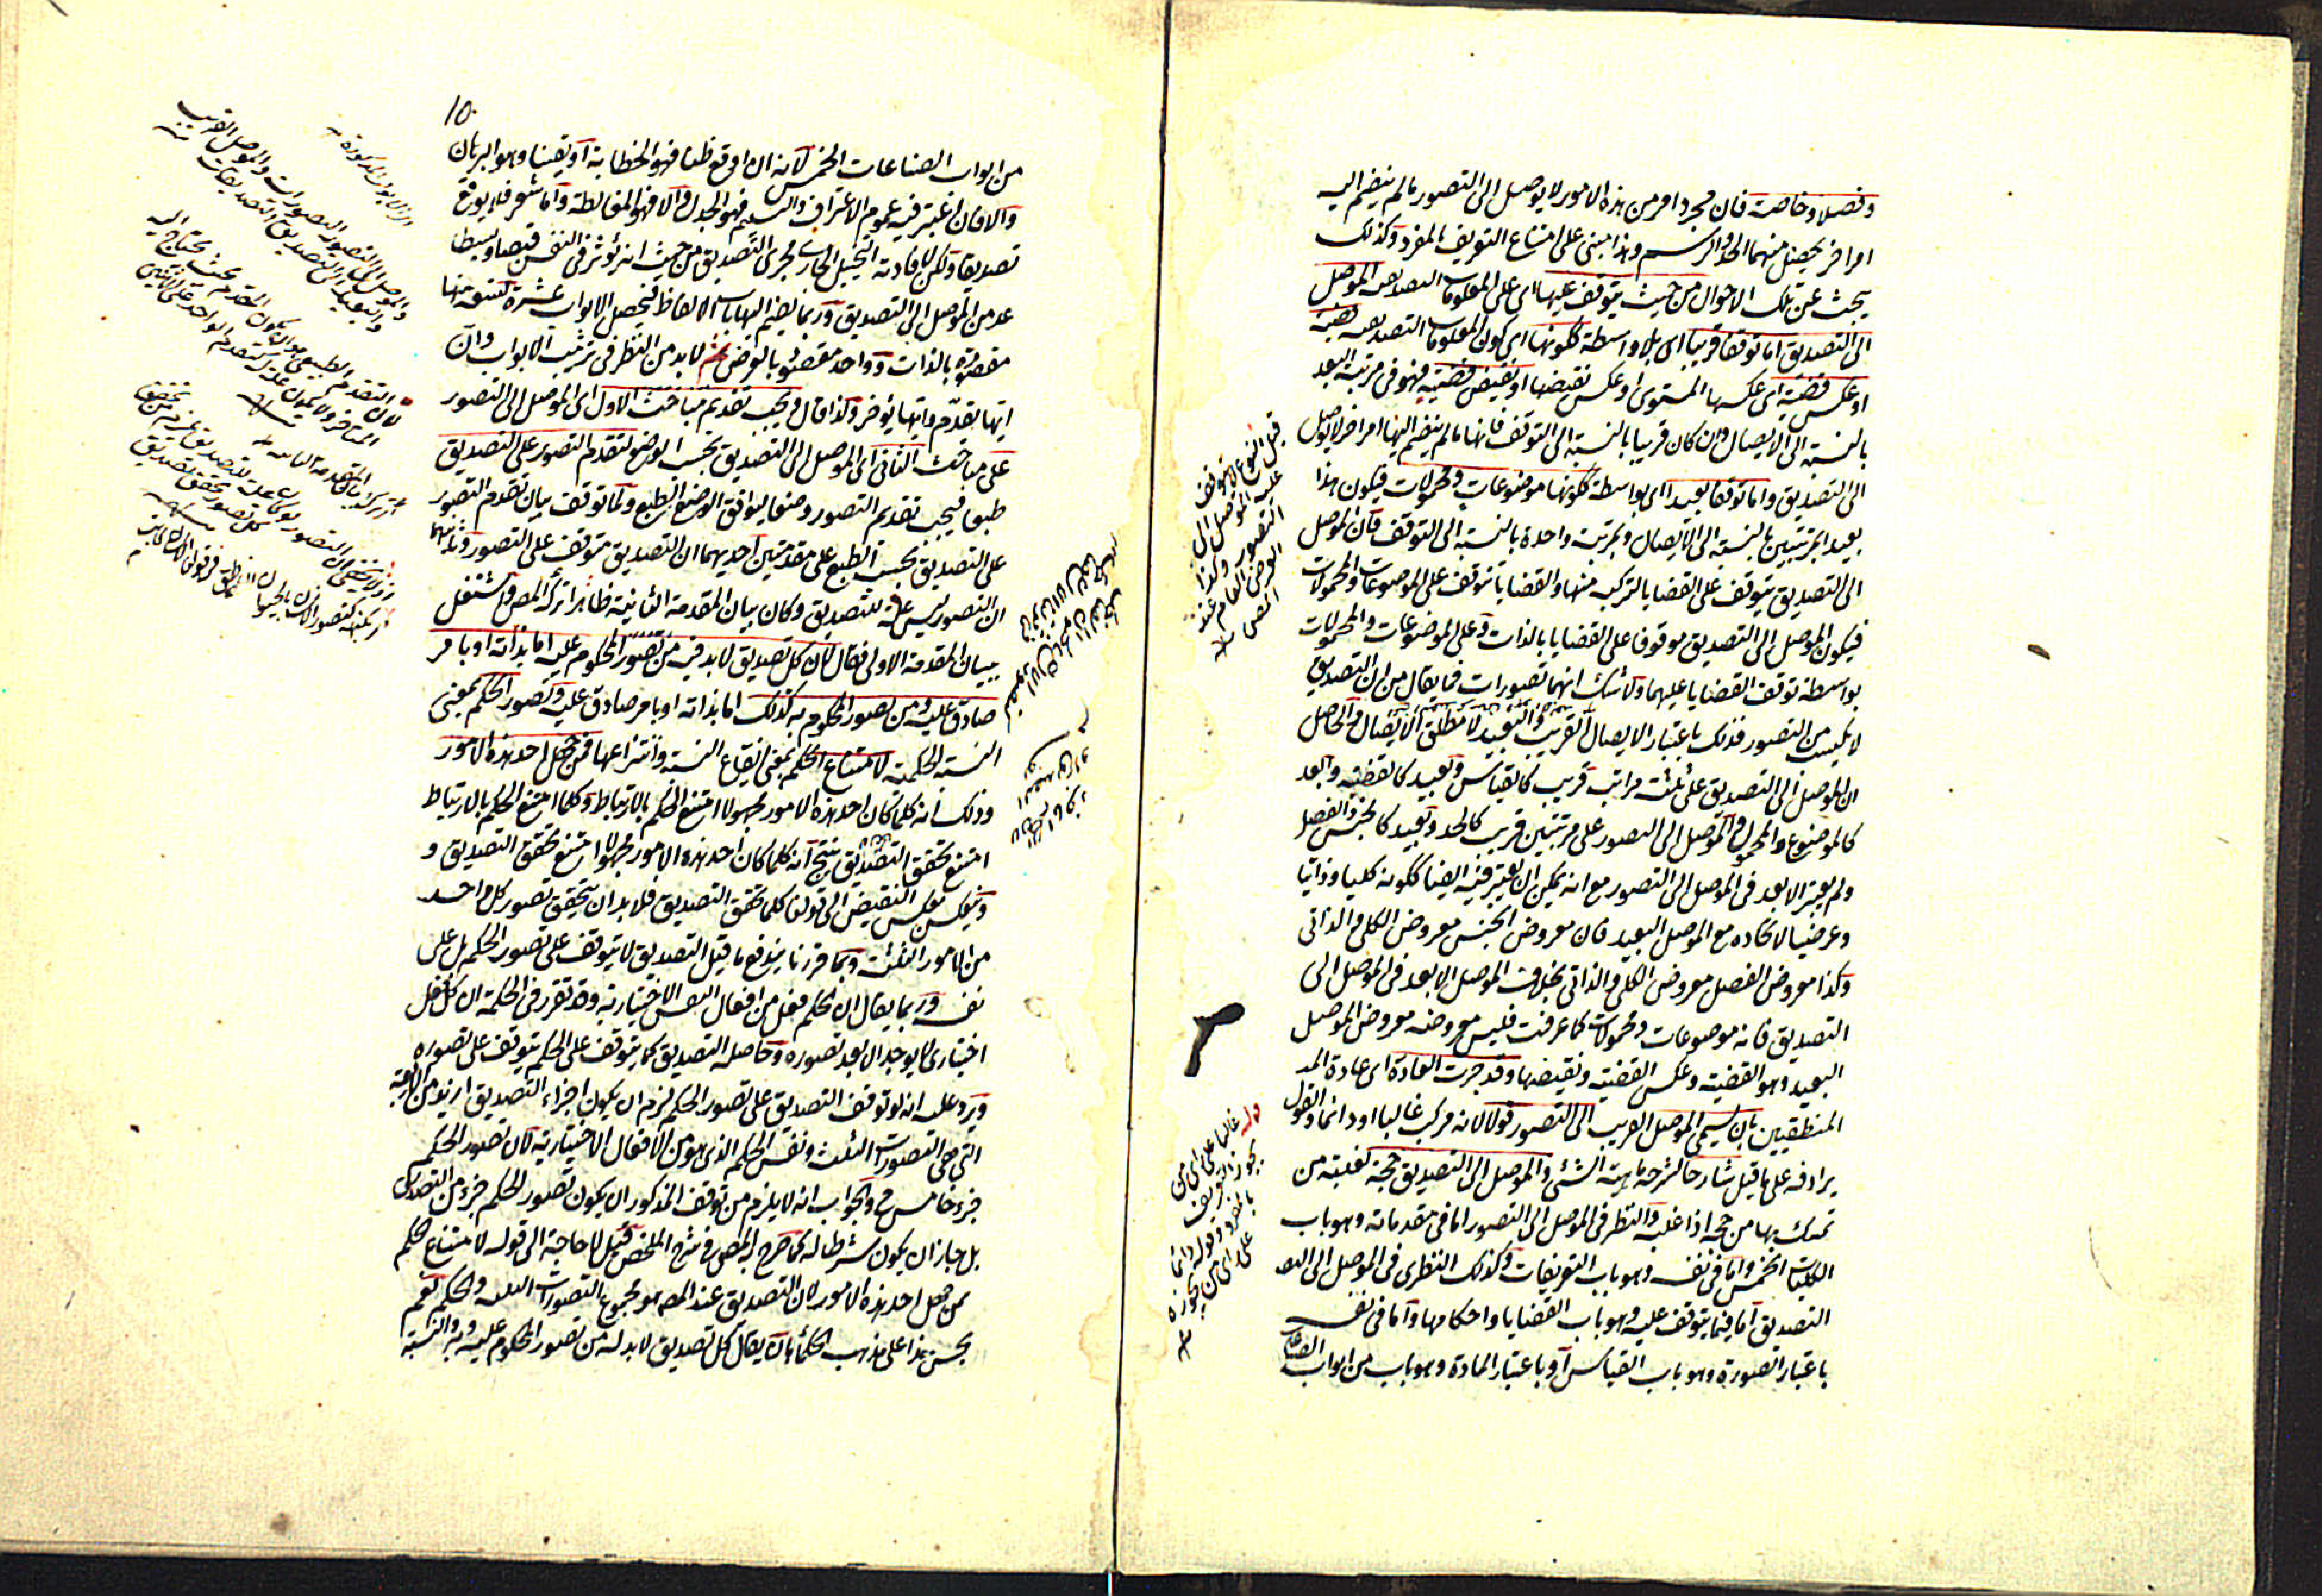 وفصلا وخاصة فان مجرد امر من هذه الامور لا يوصل الى التصور ما لم ينضم اليه
امر اخر يحصل منهما الحد والرسم وهذا مبنى على امتناع التعريف بالمفرد وكذلك
يبحث عن تلك الاحوال من حيث يتوقف عليها اى على المعلومات التصديقية الموصل
الى التصديق اما توقفا قريبا اى بلا واسطة ككونها اى كون المعلومات التصديقية قضية
او عكس قضية اى عكسها المستوى او عكس نقيضها او نقيض قضية فهو فى مرتبة البعد
بالنسبة الى الايصال وان كان قريبا بالنسبة الى التوقف فانها ما لم ينضم اليها امر اخر لا يوصل
الى التصديق واما توقفا بعيدا اى بواسطة ككونها موضوعات ومحمولات فيكون هذا
بعيدا بمرتبتين بالنسبة الى الايصال وبمرتبة واحدة بالنسبة الى التوقف فان الموصل
الى التصديق يتوقف على القضايا لتركبه منها والقضايا تتوقف على الموضوعات والمحمولات
فيكون الموصل الى التصديق موقوفا على القضايا بالذات وعلى الموضوعات والمحمولات
بواسطة توقف القضايا عليهما ولا شك انهما تصورات فما يقال من ان التصديق
لا يكتسب من التصور فذلك باعتبار الايصال القريب والبعيد لا مطلق الايصال والحاصل
ان الموصل الى التصديق على ثلث مراتب قريب كالقياس وبعيد كالقضية وابعد
كالموضوع والمحمول والموصل الى التصور على مرتبتين قريب كالحد وبعيد كالجنس والفصل
ولم يعتبر الابعد فى الموصل الى التصور مع انه يمكن ان يعتبر فيه ايضا ككونه كليا وذاتيا
وعرضيا لاتحاده مع الموصل البعيد فان معروض الجنس معروض الكلى والذاتى
وكذا معروض الفصل معروض الكلى والذاتى بخلاف الموصل الابعد فى الموصل الى
التصديق فانه موضوعات ومحمولات كما عرفت فليس معروضه معروض الموصل
البعيد وهو القضية وعكس القضية ونقيضها وقد جرت العادة اى عادة
المنطقيين بان يسمى الموصل القريب الى التصور قولا لانه مركب غالبا او دائما والقول
يرادفه على ما قيل شارحا لشرحه ماهية الشئ والموصل الى التصديق حجة لغلبة من
تمسك بها من حج اذا غلب والنظر فى الموصل الى التصور اما فى مقدماته وهو باب
الكليات الخمس واما فى نفسه وهو باب التعريفات وكذلك النظر فى الموصل الى
التصديق اما فيما يتوقف عليه وهو باب القضايا واحكامها واما فى نفسه
باعتبار الصورة وهو باب القياس او باعتبار المادة وهو باب من ابواب الصناعات
قيل النوع لا يتوقف
عليه الموصل الى
التصور وكذا
العرض العام عند
المص
قوله غالبا على راى من
يجوز التعريف
بالمفرد وقوله دائما
على راى من لا يجوزه
١٥
من ابواب الصناعات الخمس لانه ان اوقع ظنا فهو الخطابة او يقينا وهو البرهان
والا فان اعتبر فيه عموم الاعتراف والتسليم فهو الجدل والا فهو المغالطة واما الشعر فلا يوقع
تصديقا ولكن لافادته التخييل الجارى مجرى التصديق من حيث انه يؤثر فى النفس قبضا وبسطا
عد من الموصل الى التصديق وربما يضم اليها باب الالفاظ فيحصل الابواب عشرة تسعة منها
مقصودة بالذات وواحد مقصود بالعرض ثم لا بد من النظر فى ترتيب الابواب وان
ايها يقدم وايها يؤخر وكذا قال ويجب تقديم مباحث الاول اى الموصل الى التصور
على مباحث الثانى اى الموصل الى التصديق بحسب الوضع لتقدم التصور على التصديق
طبعا فيجب تقديم التصور وضعا ليوافق الوضع الطبع ولما توقف بيان تقدم التصور
على التصديق بحسب الطبع على مقدمتين احديهما ان التصديق متوقف على التصور وثانيهما
ان التصور ليس علة للتصديق وكان بيان المقدمة الثانية ظاهرا تركه المص واشتغل
ببيان المقدمة الاولى فقال لان كل تصديق لا بد فيه من تصور المحكوم عليه اما بذاته او بامر
صادق عليه ومن تصور المحكوم به كذلك اما بذاته او بامر صادق عليه وتصور الحكم بمعنى
النسبة الحكمية لامتناع الحكم بمعنى ايقاع النسبة وانتزاعها ممن جهل احد هذه الامور
وذلك انه كلما كان احد هذه الامور مجهولا امتنع الحكم بالارتباط وكلما امتنع الحكم بالارتباط
امتنع تحقق التصديق ينتج انه كلما كان احد هذه الامور مجهولا امتنع تحقق التصديق و
وينعكس بعكس النقيض الى قولنا كلما تحقق التصديق فلا بد ان يتحقق تصور كل واحد
من الامور الثلثة وبما قررنا يندفع ما قيل التصديق لا يتوقف على تصور الحكم بل على
نفسه وربما يقال ان الحكم فعل من افعال النفس الاختيارية وقد تقرر فى الحكمة ان كل فعل
اختيارى لا يوجد الا بعد تصوره وحاصله التصديق كما يتوقف على الحكم يتوقف على تصوره
ويرد عليه انه لو توقف التصديق على تصور الحكم لزم ان يكون اجزاء التصديق ازيد من الاربعة
التى هى التصورات الثلث ونفس الحكم الذى هو من الافعال الاختيارية لان تصور الحكم
جزء خامس ح والجواب انه لا يلزم من توقف المذكور ان يكون تصور الحكم جزء من التصديق
بل جاز ان يكون شرطا له كما صرح به المص فى شرح الملخص قيل لا حاجة الى قوله لامتناع الحكم
ممن جهل احد هذه الامور لان التصديق عند المص هو مجموع التصورات الثلثة والحكم نعم
يحسن هذا على مذهب الحكماء بان يقال كل تصديق لا بد له من تصور المحكوم عليه وبه والنسبة
والموصل الى التصور التصورات والموصل القريب
والبعيد الى التصديق التصديقات
لان التقدم الطبيعى هو ان يكون المتقدم بحيث يحتاج اليه
المتاخر ولا يكون علة له كتقدم الواحد على الاثنين